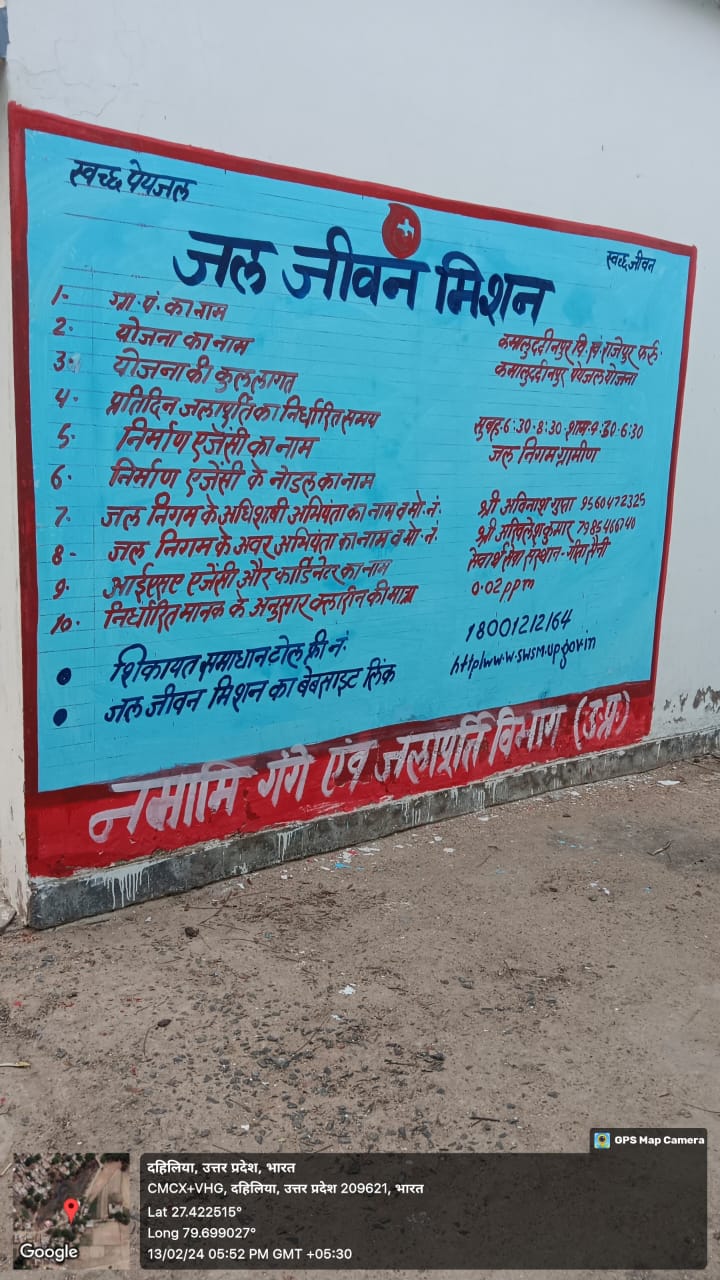 स्वच्छ पेयजल
स्वच्छ जीवन
जल जीवन मिशन
1- ग्रा.पं. का नाम कमालुददीनपुर वि.खं. राजेपुर फर्रु.
2- योजना का नाम कमालुददीनपुर पेयजल योजना
3- योजना की कुल लागत
4- प्रतिदिन जलापूर्ति का निर्धारित समय सुबह-6:30-8:30-शाम-4:30-6:30
5- निर्माण एजेंसी का नाम जल निगम ग्रामीण
6- निर्माण एजेंसी के नोडल का नाम
7- जल निगम के अधिशाषी अभियंता का नाम व मो. नं. श्री अविनाश गुप्ता 9560472325
8- जल निगम के अवर अभियंता का नाम व मो. नं. श्री अखिलेश कुमार 7985466140
9- आईएसए एजेंसी और कार्डिनेटर का नाम सेवार्थ सेवा संस्थान - गीता सैनी
10- निर्धारित मानक के अनुसार क्लारीन की मात्रा 0.02 ppm
• शिकायत समाधान टोल फ्री नं. 18001212164
• जल जीवन मिशन का बेबसाइट लिंक http/www.swsm.up.gov.in
नमामि गंगे एंव जलापूर्ति विभाग (उ.प्र.)
GPS Map Camera
दहिलिया, उत्तर प्रदेश, भारत
CMCX+VHG, दहिलिया, उत्तर प्रदेश 209621, भारत
Lat 27.422515°
Long 79.699027°
13/02/24 05:52 PM GMT +05:30
Google